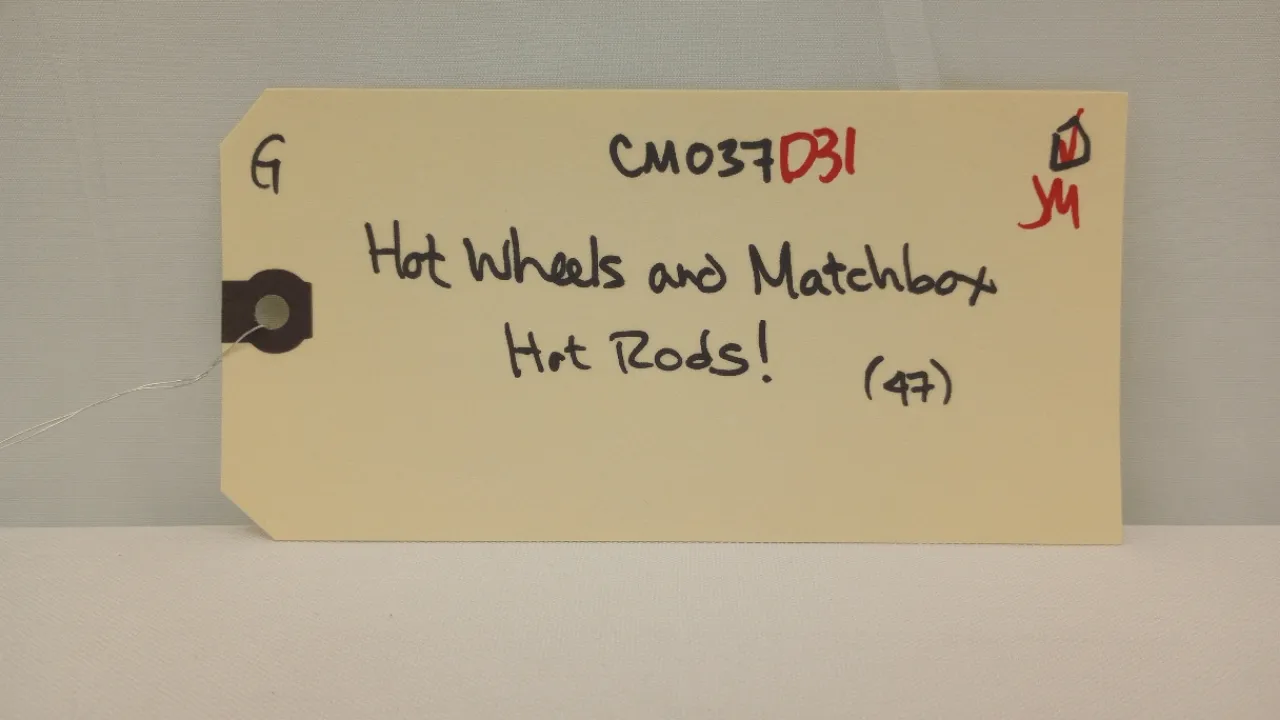 G
CM037D31
JM
Hot Wheels and Matchbox
Hot Rods!
(47)